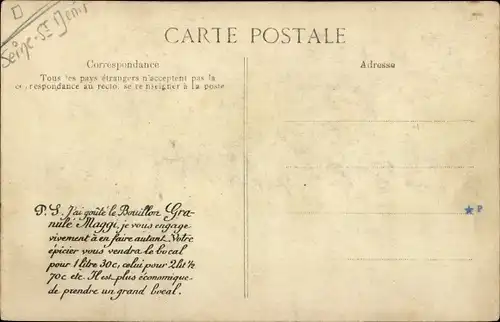 Seine-St Denis
CARTE POSTALE
Correspondance
Tous les pays étrangers n'acceptent pas la
correspondance au recto, se renseigner à la poste
Adresse
P.S. J'ai goûté le Bouillon Gra-
nulé Maggi, je vous engage
vivement à en faire autant. Votre
épicier vous vendra le bocal
pour 1 litre 30c, celui pour 2 lit ½
70c etc. Il est plus économique
de prendre un grand bocal.
P